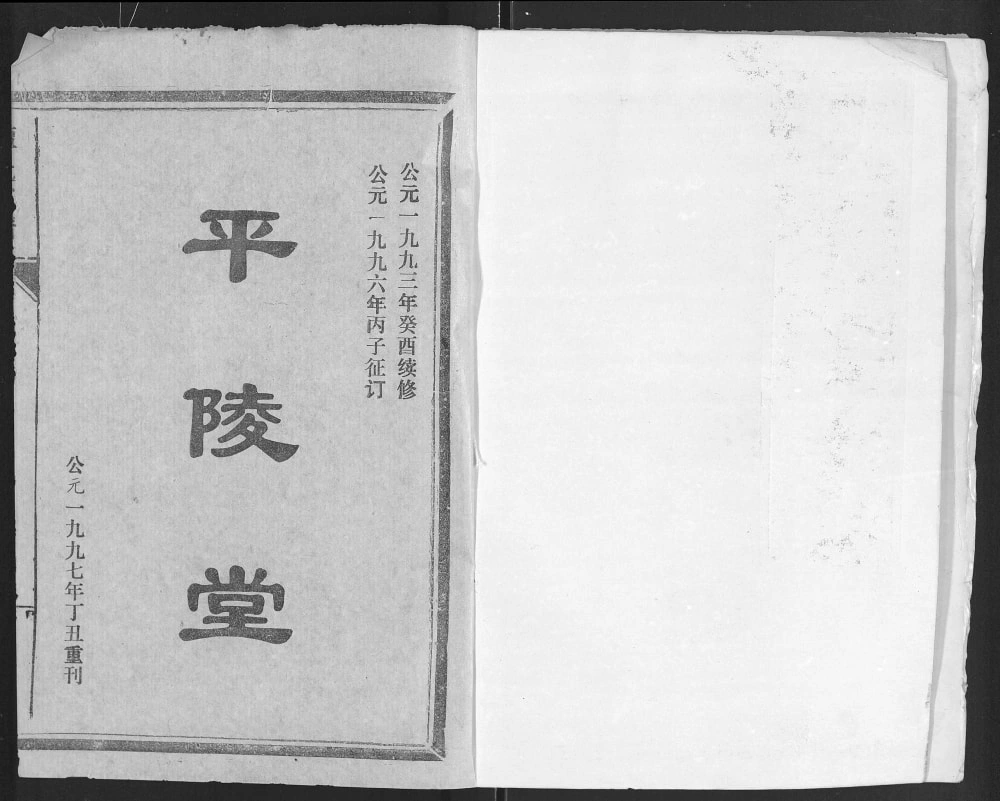 公元一九九三年癸酉续修
公元一九九六年丙子征订
平陵堂
公元一九九七年丁丑重刊